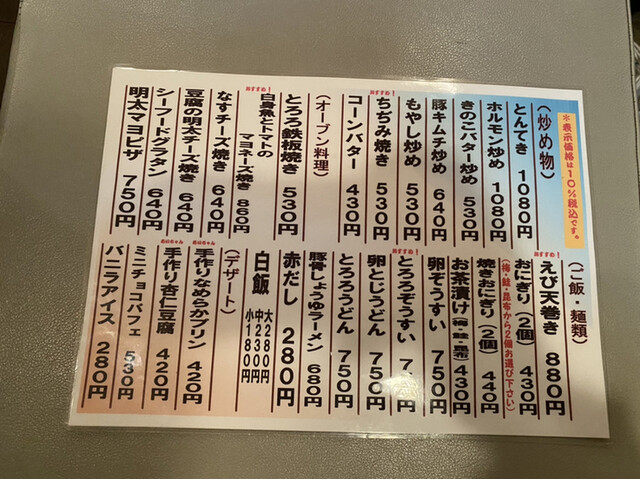 ＊表示価格は10%税込です。
(炒め物)
とんてき 1080円
ホルモン炒め 1080円
きのこバター炒め 530円
豚キムチ炒め 640円
もやし炒め 530円
おすすめ!
ちぢみ焼き 530円
コーンバター 430円
(オーブン料理)
とろろ鉄板焼き 530円
おすすめ!
白身魚とトマトの
マヨネーズ焼き 860円
なすチーズ焼き 640円
豆腐の明太チーズ焼き 640円
シーフードグラタン 640円
明太マヨピザ 750円
(ご飯・麺類)
おすすめ!
えび天巻き 880円
おにぎり(2個) 430円
(梅・鮭・昆布から2個お選び下さい)
焼きおにぎり(2個) 440円
お茶漬け(梅・鮭・昆布) 430円
卵ぞうすい 750円
おすすめ!
とろろぞうすい 7 円
卵とじうどん 750円
とろろうどん 750円
豚骨しょうゆラーメン 680円
赤だし 280円
白飯 大280円
中230円
小180円
(デザート)
手作りなめらかプリン 420円
手作り杏仁豆腐 420円
ミニチョコパフェ 530円
バニラアイス 280円